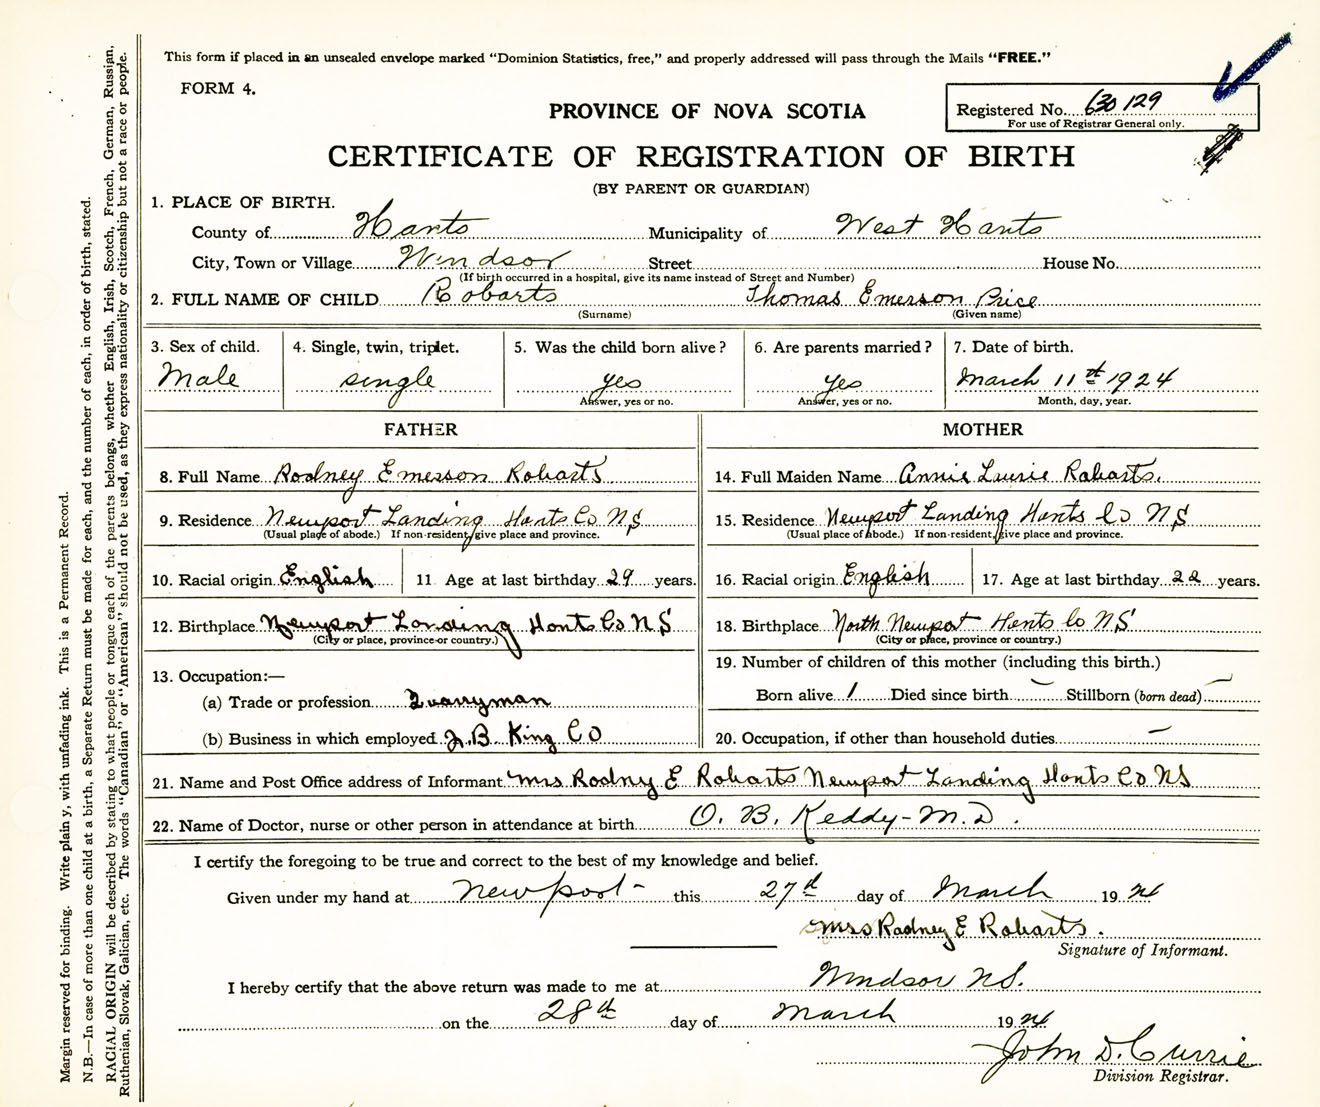 This form if placed in an unsealed envelope marked “Dominion Statistics, free,” and properly addressed will pass through the Mails “FREE.”
FORM 4.
Registered No. 630129
For use of Registrar General only.
PROVINCE OF NOVA SCOTIA
CERTIFICATE OF REGISTRATION OF BIRTH
(BY PARENT OR GUARDIAN)
1. PLACE OF BIRTH.
County of Hants Municipality of West Hants
City, Town or Village Windsor Street House No.
(If birth occurred in a hospital, give its name instead of Street and Number)
2. FULL NAME OF CHILD Robarts Thomas Emerson Price
(Surname) (Given name)
3. Sex of child. 4. Single, twin, triplet. 5. Was the child born alive? 6. Are parents married? 7. Date of birth.
Male single yes yes March 11th 1924
Answer, yes or no. Answer, yes or no. Month, day, year.
FATHER
8. Full Name Rodney Emerson Robarts
9. Residence Newport Landing Hants Co N S
(Usual place of abode.) If non-resident, give place and province.
10. Racial origin English 11 Age at last birthday 29 years.
12. Birthplace Newport Landing Hants Co N S
(City or place, province or country.)
13. Occupation:—
(a) Trade or profession Quarryman
(b) Business in which employed J.B. King Co
MOTHER
14. Full Maiden Name Annie Laurie Robarts.
15. Residence Newport Landing Hants Co N S
(Usual place of abode.) If non-resident, give place and province.
16. Racial origin English 17. Age at last birthday 22 years.
18. Birthplace North Newport Hants Co N S
(City or place, province or country.)
19. Number of children of this mother (including this birth.)
Born alive 1 Died since birth — Stillborn (born dead) —
20. Occupation, if other than household duties —
21. Name and Post Office address of Informant Mrs Rodny E Robarts Newport Landing Hants Co NS
22. Name of Doctor, nurse or other person in attendance at birth O. B. Keddy - M.D.
I certify the foregoing to be true and correct to the best of my knowledge and belief.
Given under my hand at Newport - this 27th day of March 1924
Mrs Rodney E Robarts.
Signature of Informant.
I hereby certify that the above return was made to me at Windsor N.S.
on the 28th day of March 1924
John D. Currie
Division Registrar.
Margin reserved for binding. Write plain y, with unfading ink. This is a Permanent Record.
N.B.—In case of more than one child at a birth, a Separate Return must be made for each, and the number of each, in order of birth, stated.
RACIAL ORIGIN will be described by stating to what people or tongue each of the parents belongs, whether English, Irish, Scotch, French, German, Russian,
Ruthenian, Slovak, Galician, etc. The words “Canadian” or “American” should not be used, as they express nationality or citizenship but not a race or people.